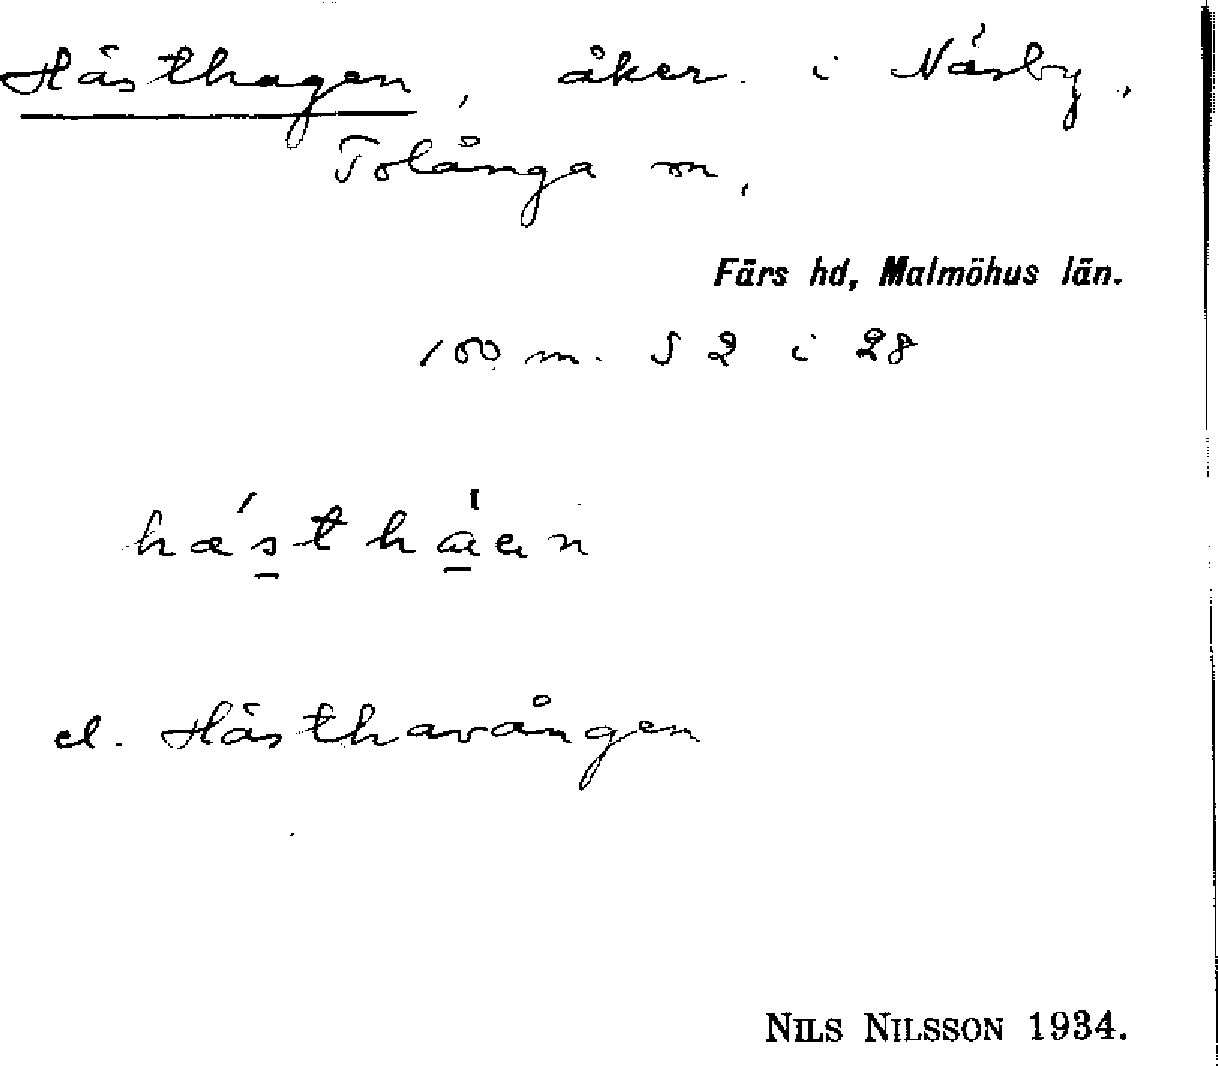 Hästhagen, åker i Näsby,
Tolånga sn,
Färs hd, Malmöhus län.
100 m. S 2 i 28
hæ´sthàan
el. Hästhavången
NILS NILSSON 1934.